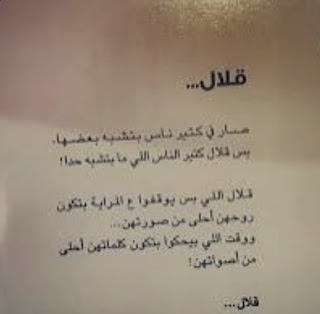 قلال...
صار في كتير ناس بتشبه بعضها.
بس قلال كتير الناس اللي ما بتشبه حدا!
قلال اللي بس يوقفوا ع المراية بتكون
روحهن أحلى من صورتهن...
ووقت اللي بيحكوا بتكون كلماتهن أحلى
من أصواتهن!
قلال...